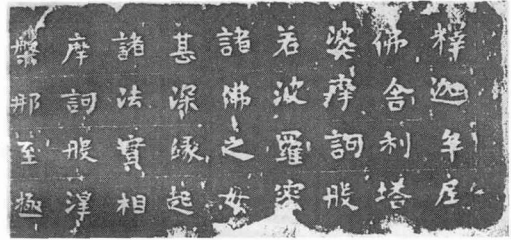 釋迦牟尼
佛舍利塔
婆摩訶般
若波羅蜜
諸佛之母
甚深緣起
諸法實相
摩訶般涅
槃那至極